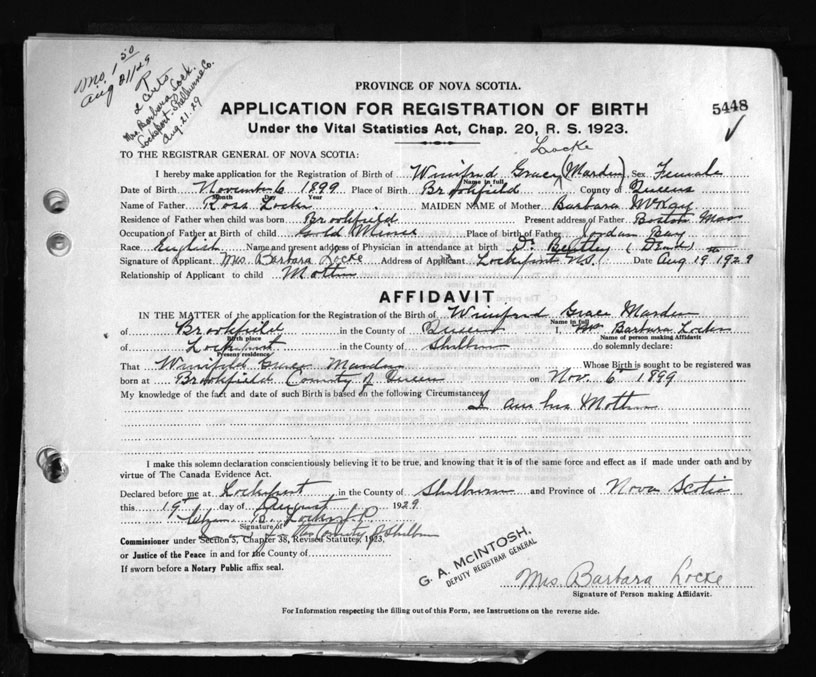 mo. 1 50
Aug 21/29
R
2 Certs
Mrs Barbara Lock.
Lockeport. Shelburne Co.
Aug. 21. 29
PROVINCE OF NOVA SCOTIA.
APPLICATION FOR REGISTRATION OF BIRTH
5448
Under the Vital Statistics Act, Chap. 20, R. S. 1923.
Locke
TO THE REGISTRAR GENERAL OF NOVA SCOTIA:
I hereby make application for the Registration of Birth of Winifred Grace (Marden) Sex Female
Name in full
Date of Birth November 6 1899 Place of Birth Brookfield County of Queens
Month Day Year
Name of Father Ross Locke MAIDEN NAME of Mother Barbara McKay
Residence of Father when child was born Brookfield Present address of Father Boston Mass
Occupation of Father at Birth Gold Miner Place of birth of Father Jordan Bay
Race English Name and present address of Physician in attendance at birth Dr Bentley (Dead)
Signature of Applicant Mrs. Barbara Locke Address of Applicant Lockeport N.S. Date Aug 19 1929
Relationship of Applicant to child Mother
AFFIDAVIT
IN THE MATTER of the application for the Registration of the Birth of Winifred Grace Marden
Name in full
of Brookfield in the County of Queens I, Mrs Barbara Locke
Birth place Name of person making Affidavit
of Lockeport in the County of Shelburne do solemnly declare:
Present residence
That Winifred Grace Marden Whose Birth is sought to be registered was
born at Brookfield County of Queens on Nov. 6th 1899
My knowledge of the fact and date of such Birth is based on the following Circumstances I am her Mother
I make this solemn declaration conscientiously believing it to be true, and knowing that it is of the same force and effect as if made under oath and by
virtue of The Canada Evidence Act.
Declared before me at Lockeport in the County of Shelburne and Province of Nova Scotia
this 19th day of August 1929
B. Locke J.P.
Signature of
the County of Shelburne
Commissioner under Section 5, Chapter 38, Revised Statutes, 1923,
or Justice of the Peace in and for the County of
If sworn before a Notary Public affix seal.
G. A. MCINTOSH.
DEPUTY REGISTRAR GENERAL
Mrs Barbara Locke
Signature of Person making Affidavit.
For Information respecting the filling out of this Form, see Instructions on the reverse side.